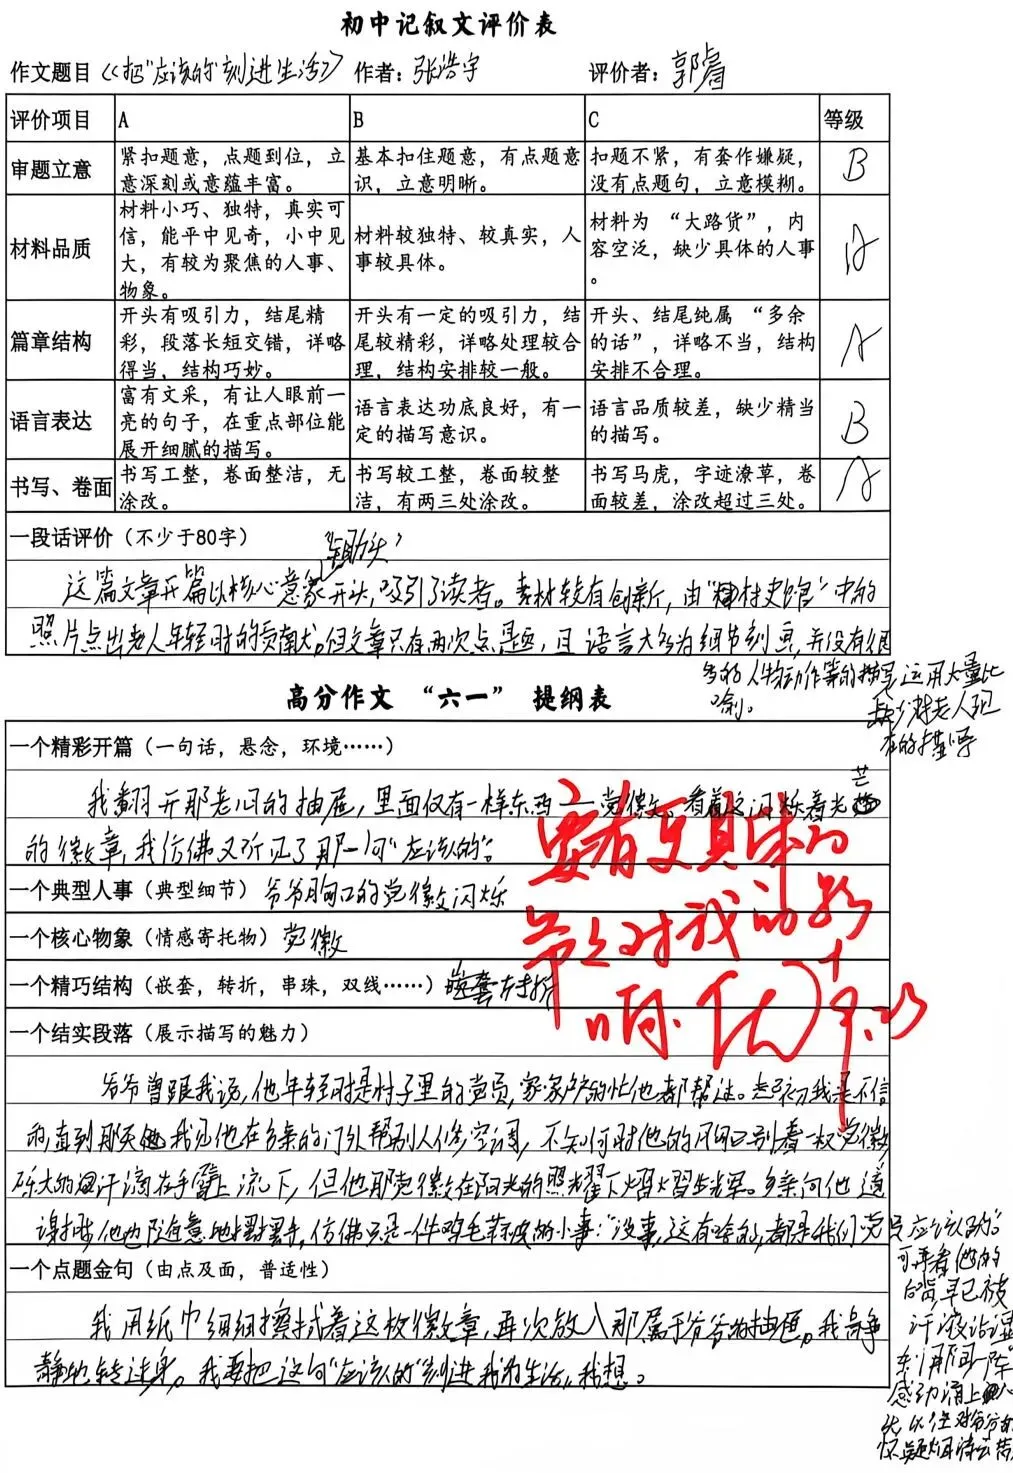 初中记叙文评价表
作文题目《把"应该的"刻进生活》 作者：张浩宇 评价者：郭睿
评价项目 A B C 等级
审题立意 紧扣题意，点题到位，立意深刻或意蕴丰富。 基本扣住题意，有点题意识，立意明晰。 扣题不紧，有套作嫌疑，没有点题句，立意模糊。 B
材料品质 材料小巧、独特，真实可信，能平中见奇，小中见大，有较为聚焦的人事、物象。 材料较独特、较真实，人事较具体。 材料为 “大路货”，内容空泛，缺少具体的人事。 A
篇章结构 开头有吸引力，结尾精彩，段落长短交错，详略得当，结构巧妙。 开头有一定的吸引力，结尾较精彩，详略处理较合理，结构安排较一般。 开头、结尾纯属 “多余的话”，详略不当，结构安排不合理。 A
语言表达 富有文采，有让人眼前一亮的句子，在重点部位能展开细腻的描写。 语言表达功底良好，有一定的描写意识。 语言品质较差，缺少精当的描写。 B
书写、卷面 书写工整，卷面整洁，无涂改。 书写较工整，卷面较整洁，有两三处涂改。 书写马虎，字迹潦草，卷面较差，涂改超过三处。 A
一段话评价（不少于80字）
"锄头"
这篇文章开篇以核心意象开头，吸引了读者。素材较有创新，由"村史馆"中的
照片点出老人年轻时的贡献。但文章只有两次点题，且语言大多为细节刻画，并没有
多的人物动作等的描写，运用大量比
喻。
缺少对老人现
在的描写
高分作文 “六一” 提纲表
一个精彩开篇（一句话，悬念，环境……）
我翻开那老旧的抽屉，里面仅有一样东西——党徽。看着这闪烁着光芒
的徽章，我仿佛又听见了那一句"应该的"。
一个典型人事（典型细节） 爷爷胸口的党徽闪烁
一个核心物象（情感寄托物） 党徽
一个精巧结构（嵌套，转折，串珠，双线……） 嵌套 转折
要有更具体的
节，对我的影
响。优
一个结实段落（展示描写的魅力）
爷爷曾跟我说，他年轻时是村子里的党员，家家户户的忙他都帮过。起初我是不信
的，直到那天我见他在乡亲的门外帮别人修空调，不知何时他的胸口别着一枚党徽，
硕大的汗滴在手臂上流下，但他那党徽在阳光的照耀下熠熠生辉。乡亲向他道
谢时，他也随意地摆摆手，仿佛只是一件鸡毛蒜皮的小事："没事，这有啥的，都是我们党员应该的。"
可再看他的
背，早已被
汗液沾湿
那一阵
感动涌上
以往对爷爷的
怀疑烟消云散
一个点题金句（由点及面，普适性）
我用纸巾细细擦拭着这枚徽章，再次放入那属于爷爷的抽屉。我静
静地转过身。我要把这句"应该的"刻进我的生活，我想。